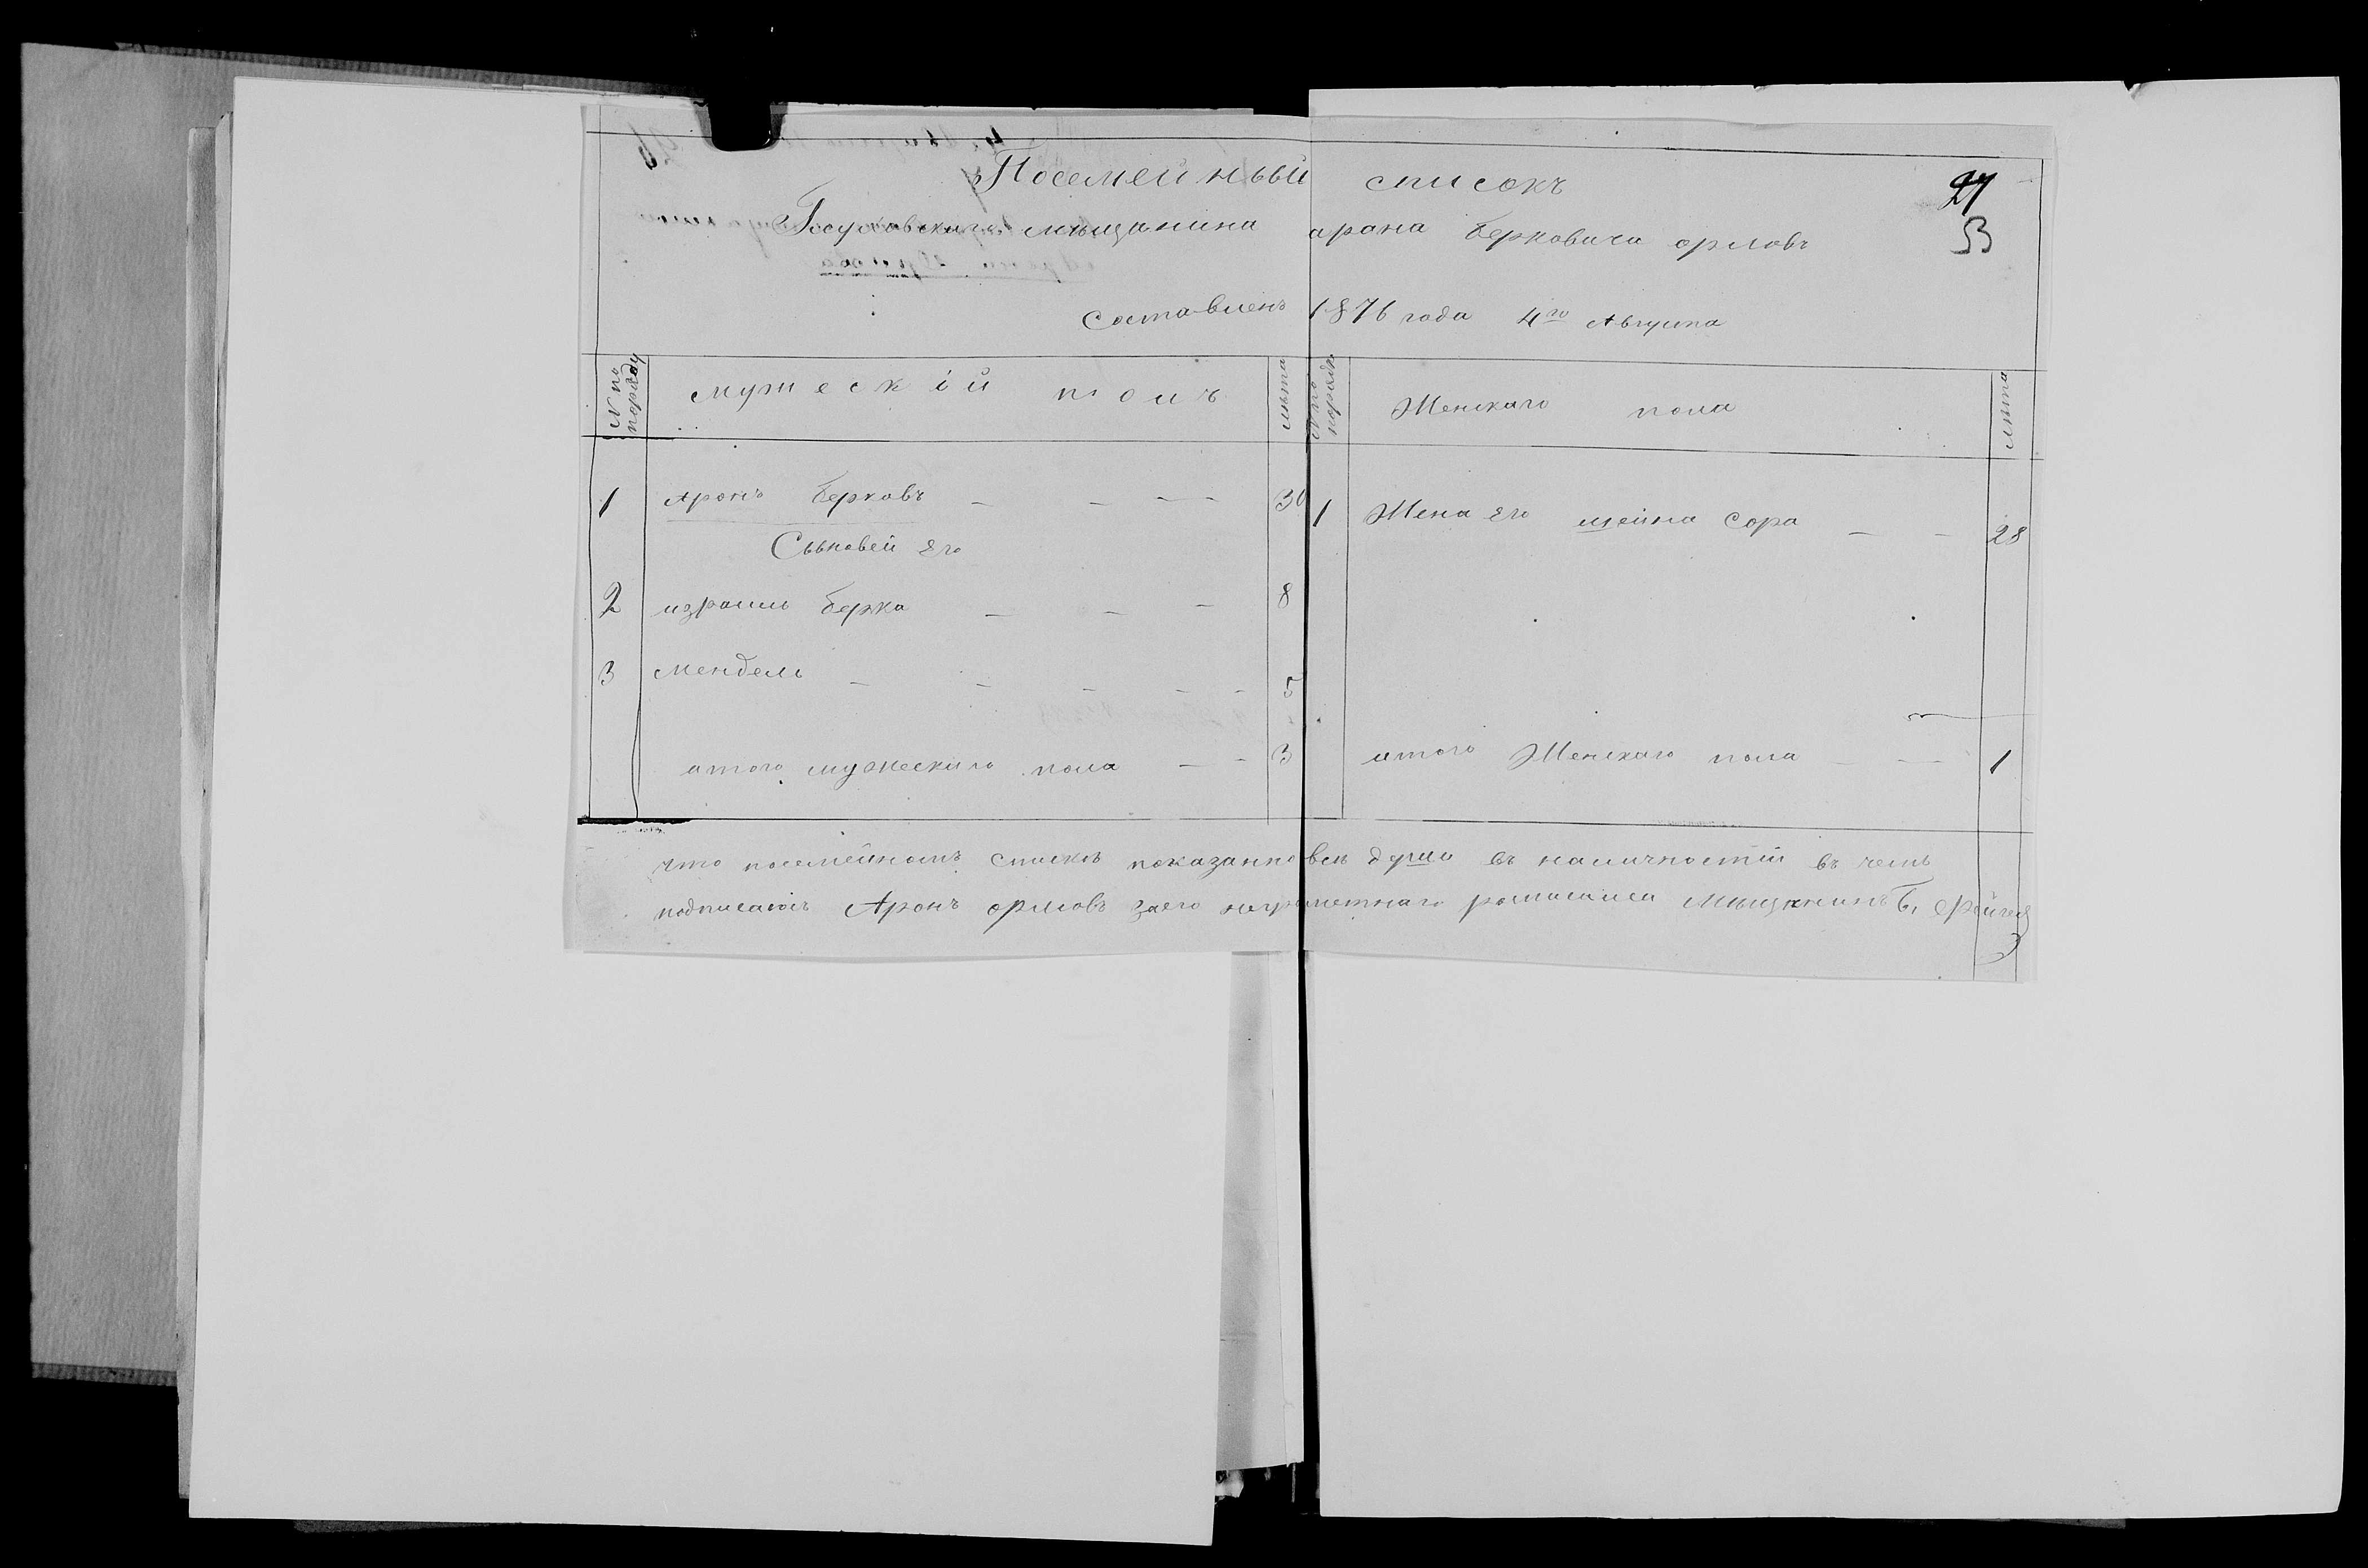 Посемейный списокъ
27
мещанина арона Берковича орловъ
53
составленъ 1876 года 4го Августа
№ по порядку
мужескій полъ
лета
№ по порядку
Женскаго пола
лета
1 Аронъ Берковъ — — — 30
1 Жена Его шейна Сора — — 28
Сыновей Его
2 израиль Берка — — — 8
3 Мендель — — — — — 5
итого мужескаго пола — — 3
итого Женскаго пола — — 1
что посемейномъ списке показанно все душы въ наличностии въ чемъ
подписаюсь Аронъ орловъ заего неграмотнаго росписалса Мещанинъ Б.